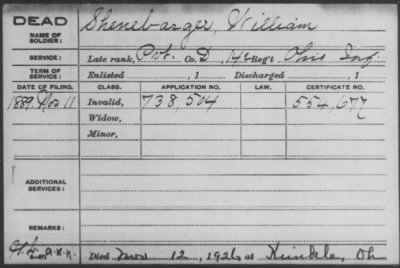 DEAD
NAME OF SOLDIER: Shenebarger, William
SERVICE: Late rank, Pvt. Co. D, 142 Reg't Ohio Inf
TERM OF SERVICE: Enlisted , 1 Discharged , 1
DATE OF FILING. CLASS. APPLICATION NO. LAW. CERTIFICATE NO.
1889, Nov 11 Invalid, 738,504 554,677
Widow,
Minor,
ADDITIONAL SERVICES:
REMARKS:
Died Nov 12, 1926 at Ohio